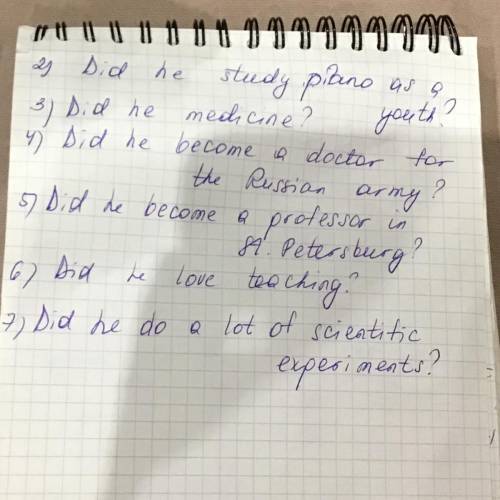 2) Did he study piano as a
youth?
3) Did he medicine?
4) Did he become a doctor for
the Russian army?
5) Did he become a professor in
St. Petersburg?
6) Did he love teaching?
7) Did he do a lot of scientific
experiments?